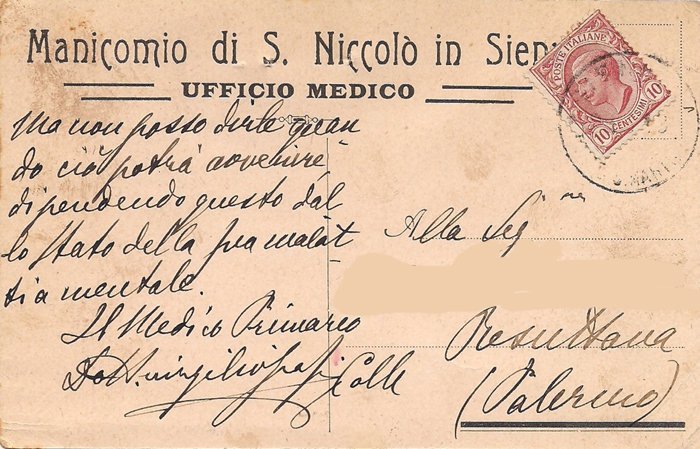 Manicomio di S. Niccolò in Siena
UFFICIO MEDICO
POSTE ITALIANE
CENTESIMI
10
10
Ma non posso dirle quan
do ciò potrà avvenire,
dipendendo questo dal
lo stato della sua malat
tia mentale.
Il Medico Primario
Dott. Virgilio
Alla Sig
Resuttana
(Palermo)